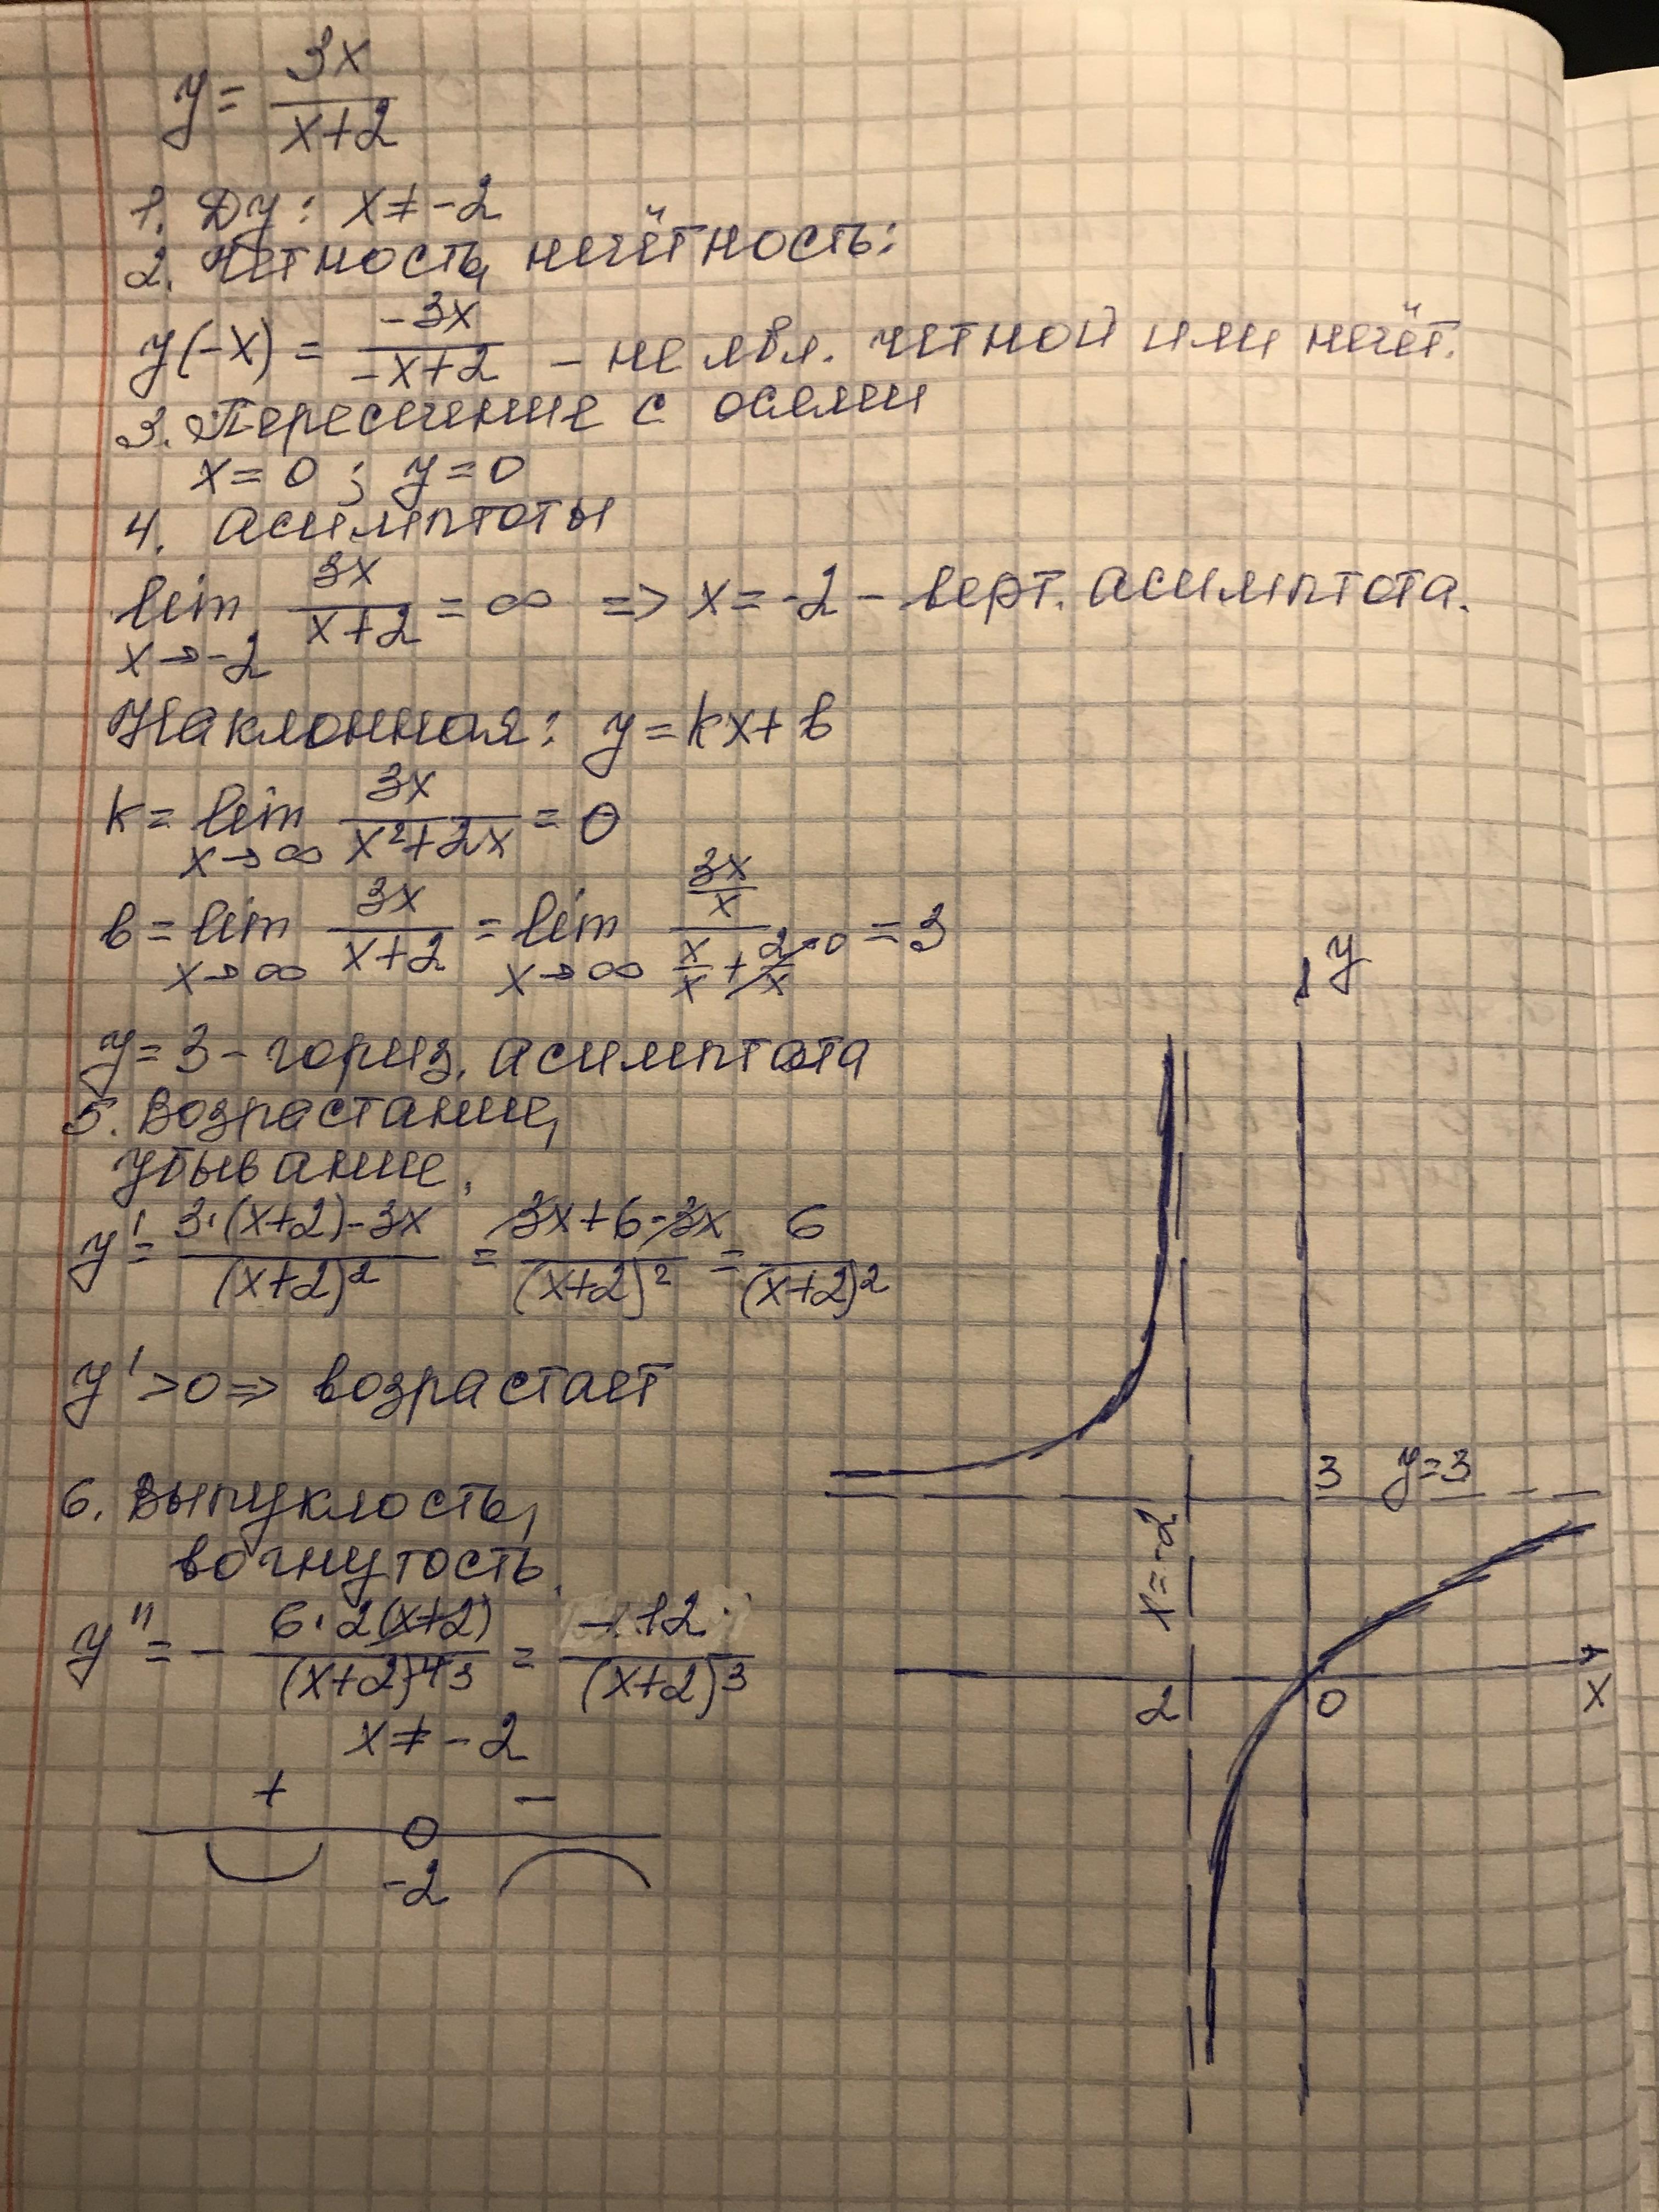 y = 3x / x+2
1. Dy: x ≠ -2
2. Четность, нечётность:
y(-x) = -3x / -x+2 - не явл. четной или нечёт.
3. Пересечение с осями
x = 0 ; y = 0
4. асимптоты
lim x→-2 3x / x+2 = ∞ => x = -2 - верт. асимптота.
Наклонная: y = kx + b
k = lim x→∞ 3x / x²+2x = 0
b = lim x→∞ 3x / x+2 = lim x→∞ 3x/x / x/x + 2/x→0 = 3
y = 3 - гориз. асимптота
5. Возрастание,
убывание.
y' = 3·(x+2)-3x / (x+2)² = 3x+6-3x / (x+2)² = 6 / (x+2)²
y' > 0 => возрастает
6. Выпуклость,
вогнутость.
y'' = - 6·2(x+2) / (x+2)⁴ ³ = -12 / (x+2)³
x ≠ -2
+ -
-2
y
3 y=3
x=-2
2 0 x